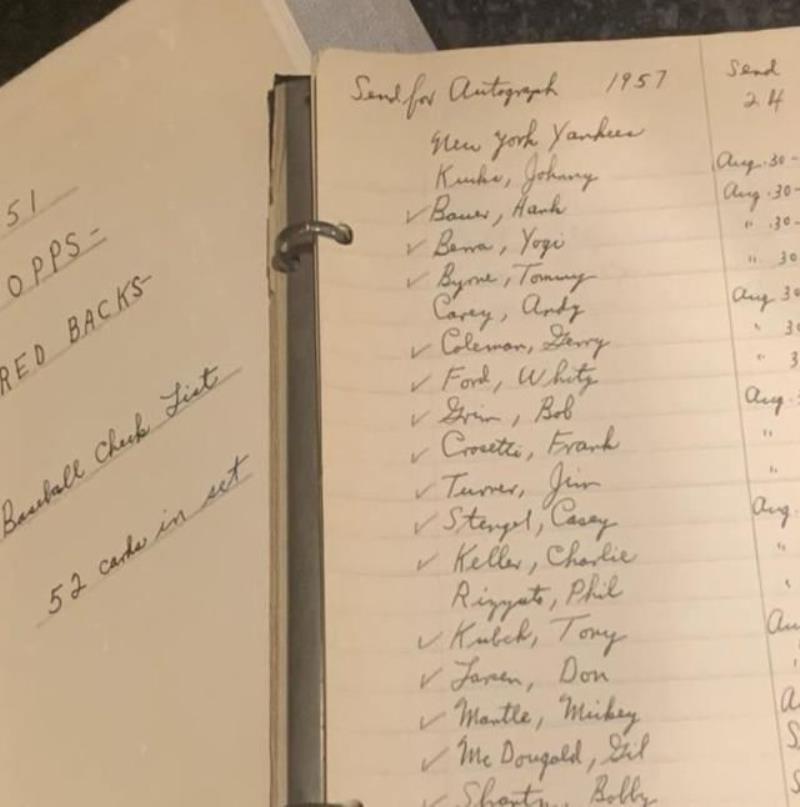 51
OPPS-
RED BACKS-
Baseball Check List
52 cards in set
Send for Autograph 1957
New York Yankees
Kucks, Johnny
✓ Bauer, Hank
✓ Berra, Yogi
✓ Byrne, Tommy
Carey, Andy
✓ Coleman, Gerry
✓ Ford, Whity
✓ Grim, Bob
✓ Crosetti, Frank
✓ Turner, Jim
✓ Stengel, Casey
✓ Keller, Charlie
Rizzuto, Phil
✓ Kubek, Tony
✓ Larsen, Don
✓ Mantle, Mickey
✓ McDougald, Gil
✓ Shantz, Bobby
Send
24
Aug. 30-
Aug. 30-
" 30-
" 30
Aug 30
" 30
" 3
Aug. 3
"
"
Aug.
"
"
Au
"
A
S
S